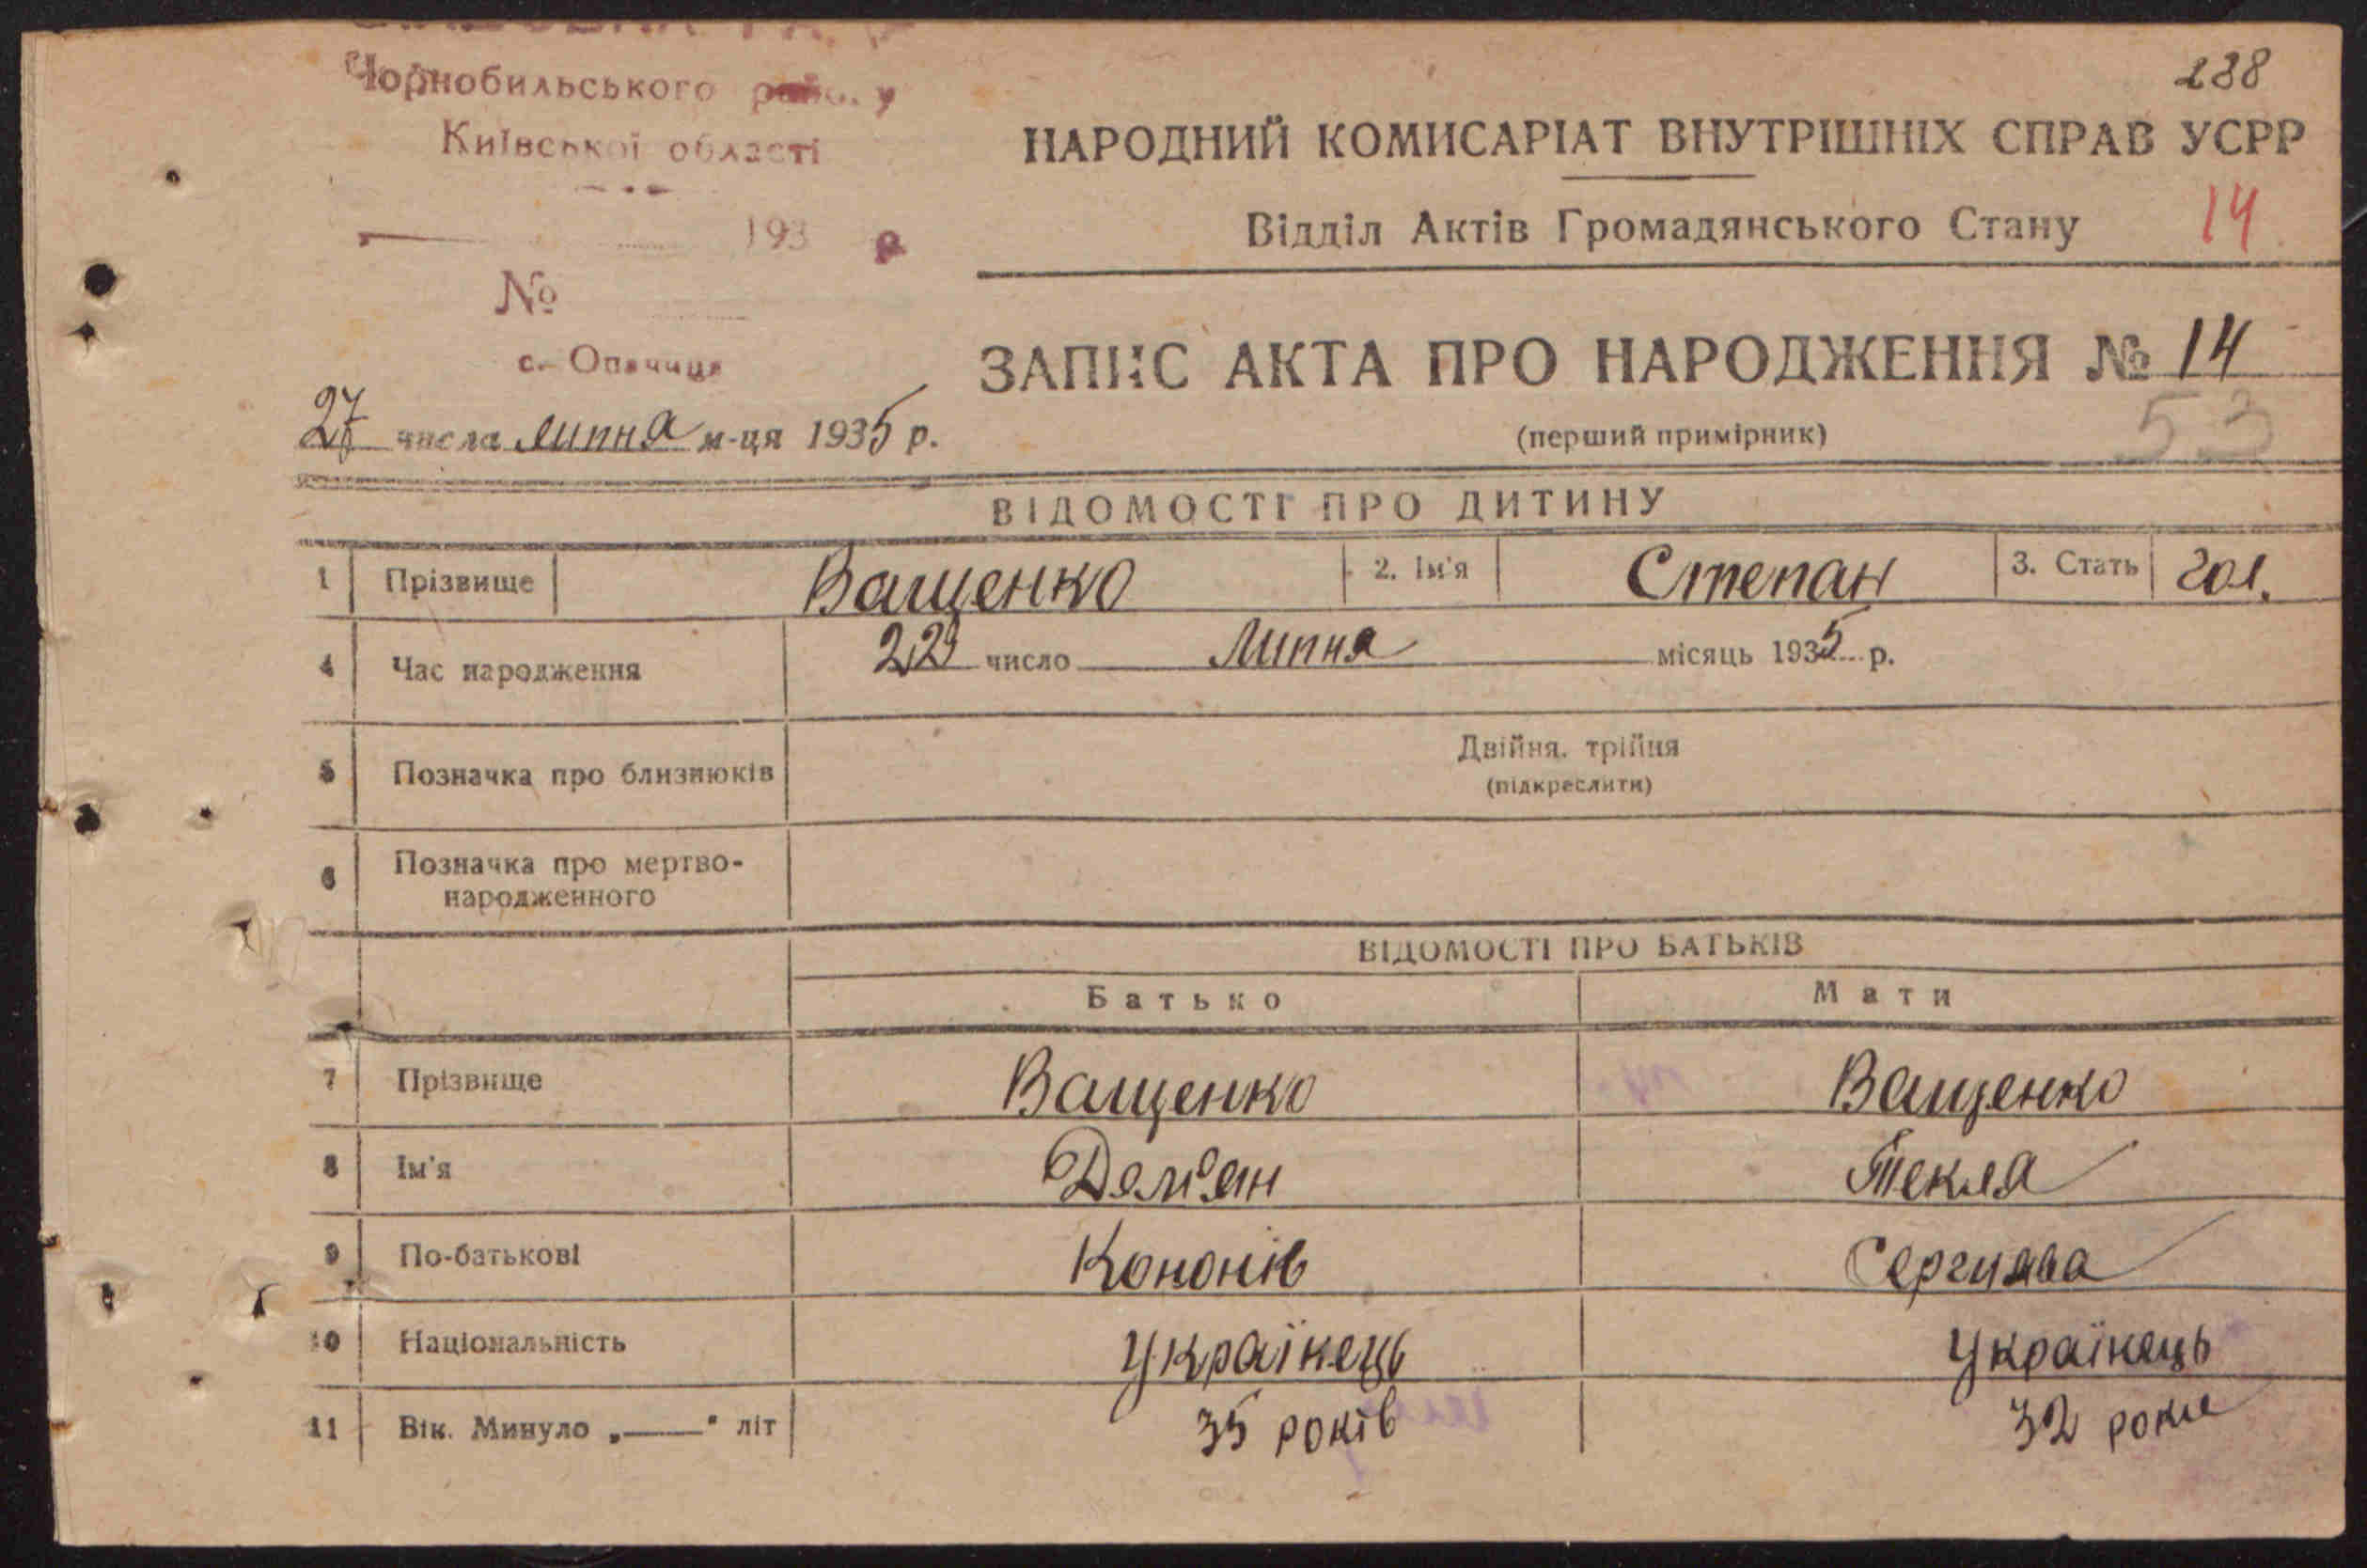 Чорнобильського району
Київської області
193 р
№
с. Опачиця
27 числа липня м-ця 1935 р.
238
НАРОДНИЙ КОМИСАРІАТ ВНУТРІШНІХ СПРАВ УСРР
Відділ Актів Громадянського Стану 14
ЗАПИС АКТА ПРО НАРОДЖЕННЯ № 14
(перший примірник) 53
ВІДОМОСТІ ПРО ДИТИНУ
1 Прізвище Ващенко 2. Ім'я Степан 3. Стать чол.
4 Час народження 22 число Липня місяць 1935 р.
5 Позначка про близнюків Двійня, трійня
(підкреслити)
6 Позначка про мертво-
народженного
ВІДОМОСТІ ПРО БАТЬКІВ
Батько Мати
7 Прізвище Ващенко Ващенко
8 Ім'я Дем'ян Текля
9 По-батькові Кононів Сергиява
10 Національність Українець Українець
11 Вік. Минуло „——" літ 35 років 32 роки